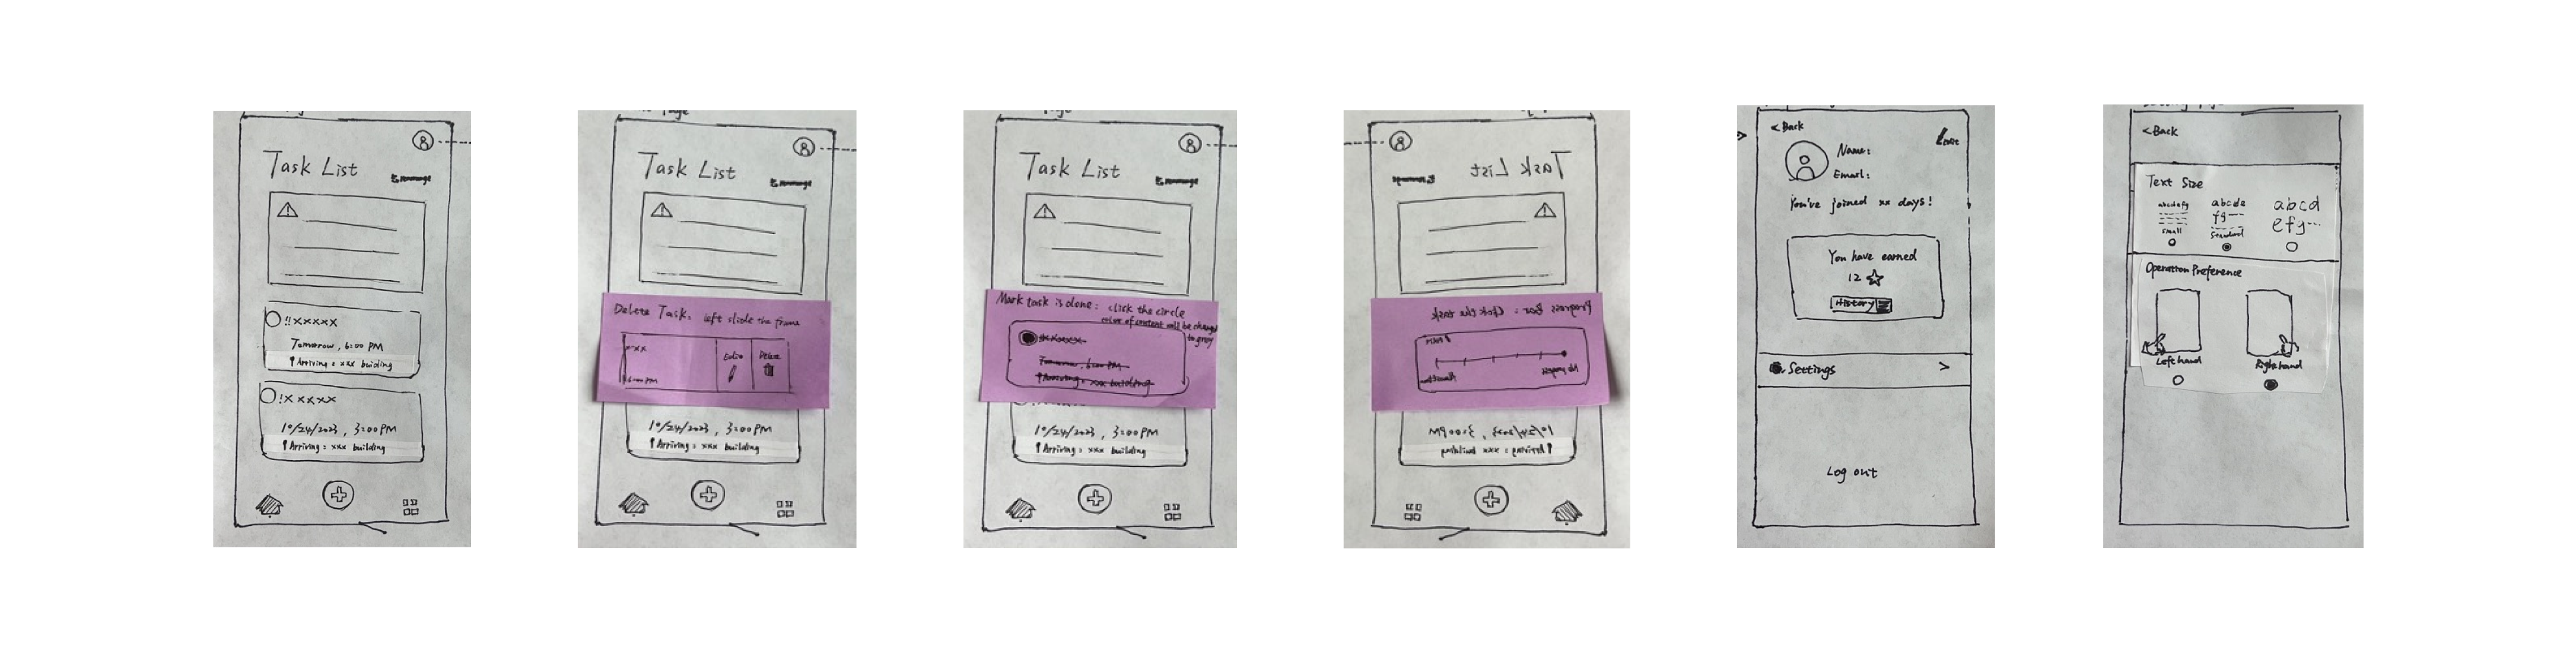 Task List
!!xxxxx
Tomorrow, 6:00 PM
Arriving: xxx building
!xxxxx
10/24/2023, 3:00 PM
Arriving: xxx building
Task List
Delete Task: left slide the frame
Delete
6:00 PM
10/24/2023, 3:00 PM
Arriving: xxx building
Task List
Mark task is done: click the circle
color of content will be changed
to grey
xxxxx
Tomorrow, 6:00 PM
Arriving: xxx building
10/24/2023, 3:00 PM
Arriving: xxx building
Task List
Progress Bar: Click the task
10/24/2023, 3:00 PM
Arriving: xxx building
< Back
Edit
Name:
Email:
You've joined xx days!
You have earned
12
History
Settings >
Log out
< Back
Text Size
abcdefg abcde abcd
fg efg
small Standard
Operation Preference
Left hand Right hand